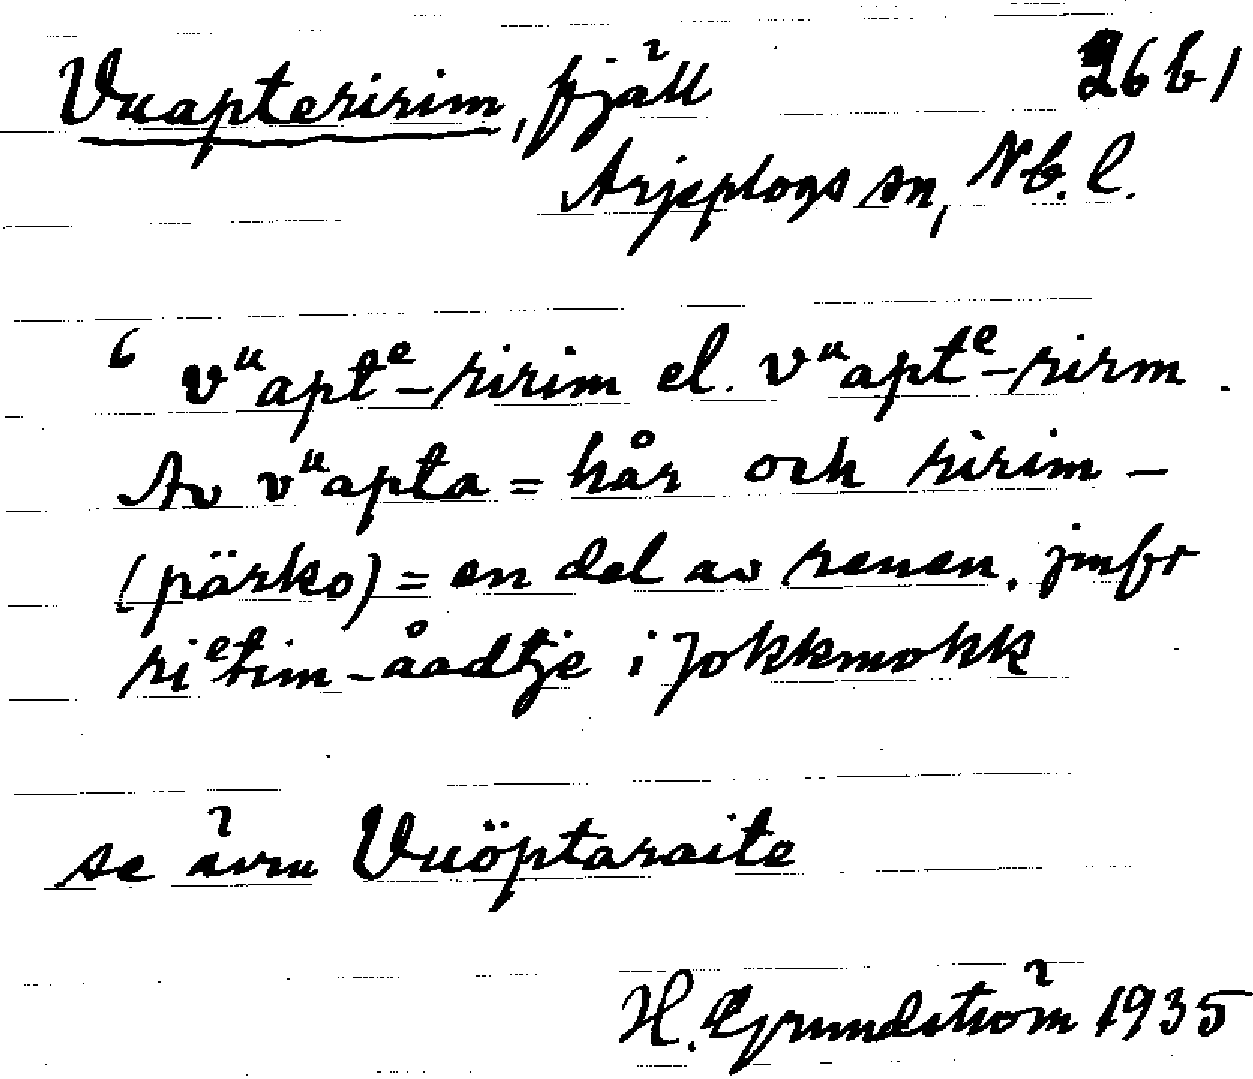 Vuapteririm, fjäll 26 b 1
Arjeplogs sn, Nb. l.
6 vᵘaptᵉ-ririm el. vᵘaptᵉ-rirm.
Av vᵘapta = hår och ririm -
(pärko) = en del av renen. jmfr
riᵉtim-åadtje i Jokkmokk
se även Vuöptaraite
H. Grundström 1935